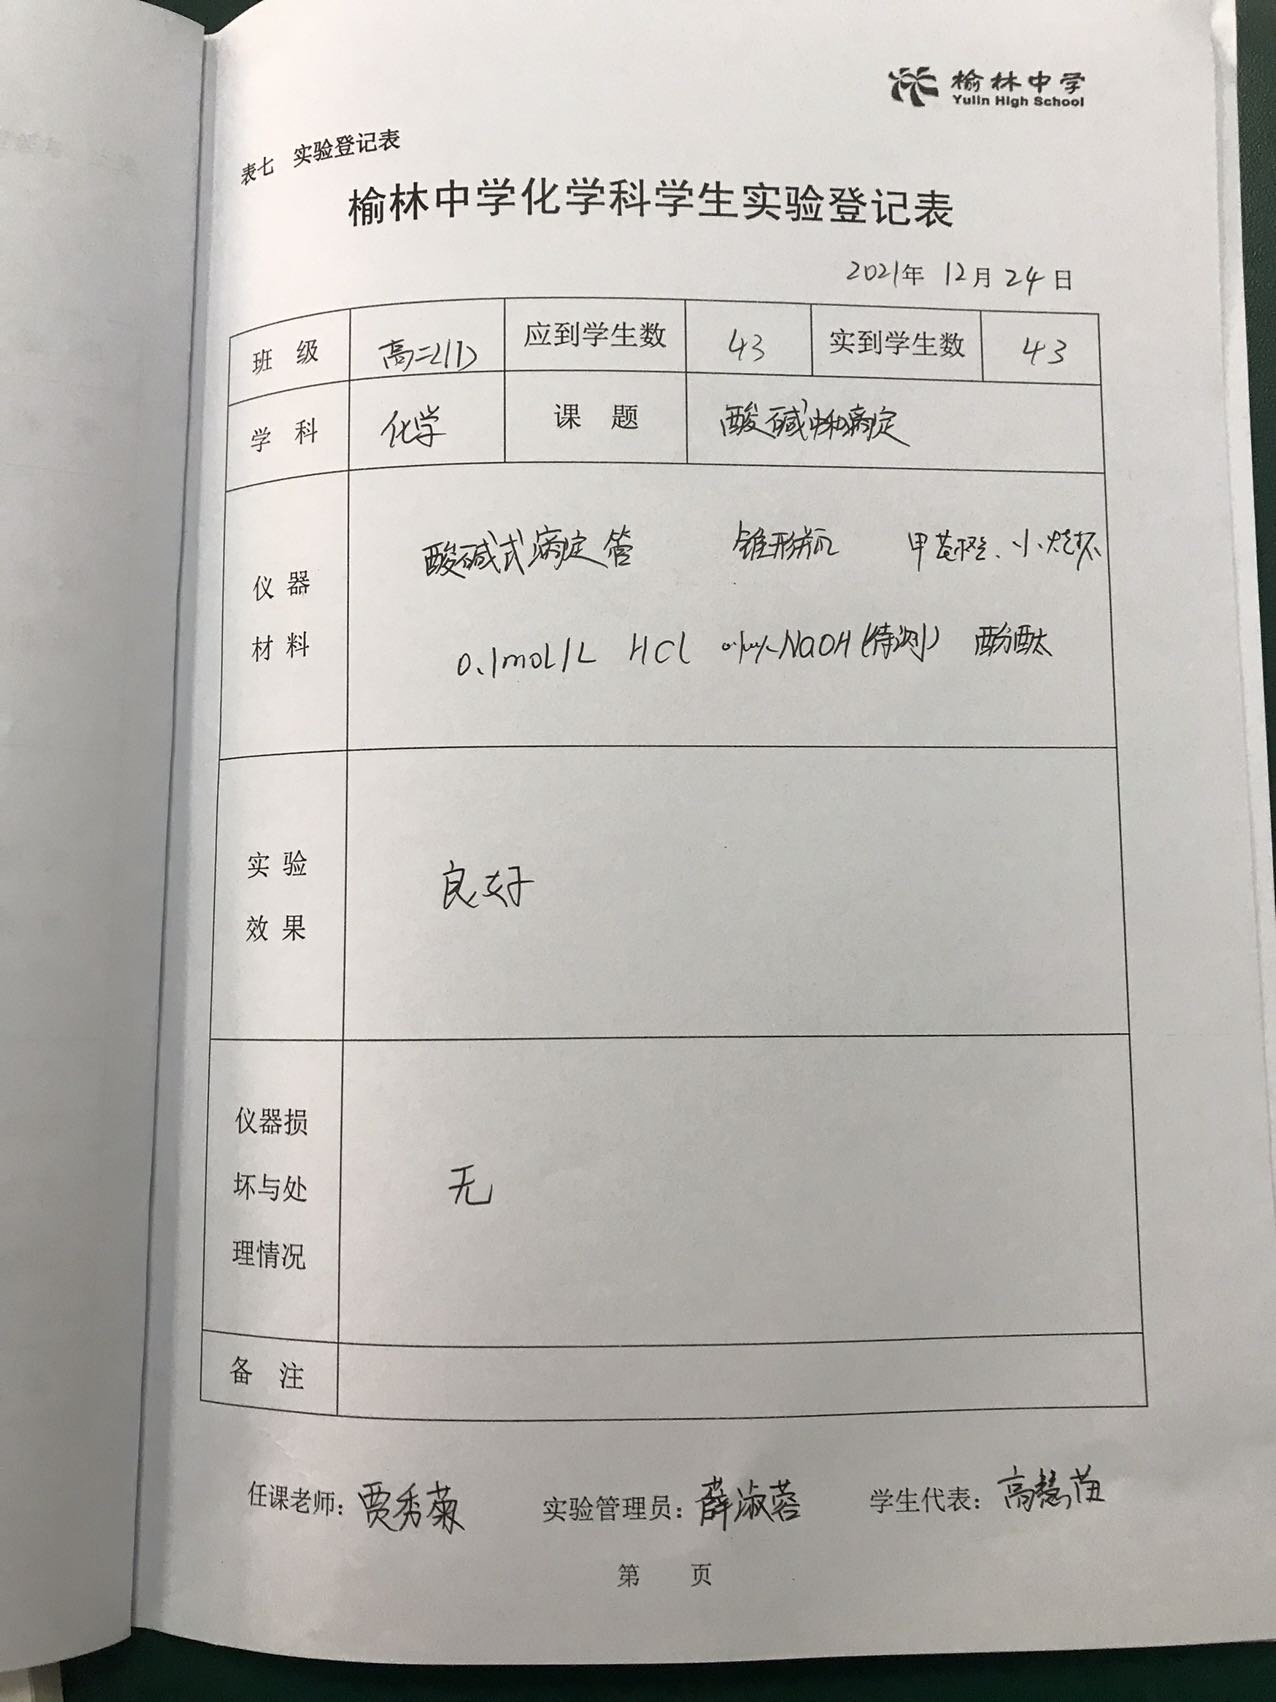 榆林中学
Yulin High School
表七 实验登记表
榆林中学化学科学生实验登记表
2021年 12月 24日
班 级 高二(1) 应到学生数 43 实到学生数 43
学 科 化学 课 题 酸碱中和滴定
仪 器
材 料
酸碱式滴定管 锥形瓶 甲基橙、小烧杯
0.1mol/L HCl 0.1mol/L NaOH(待测) 酚酞
实 验
效 果
良好
仪器损
坏与处
理情况
无
备 注
任课老师：贾秀菊 实验管理员：薛淑蓉 学生代表：高慧
第 页